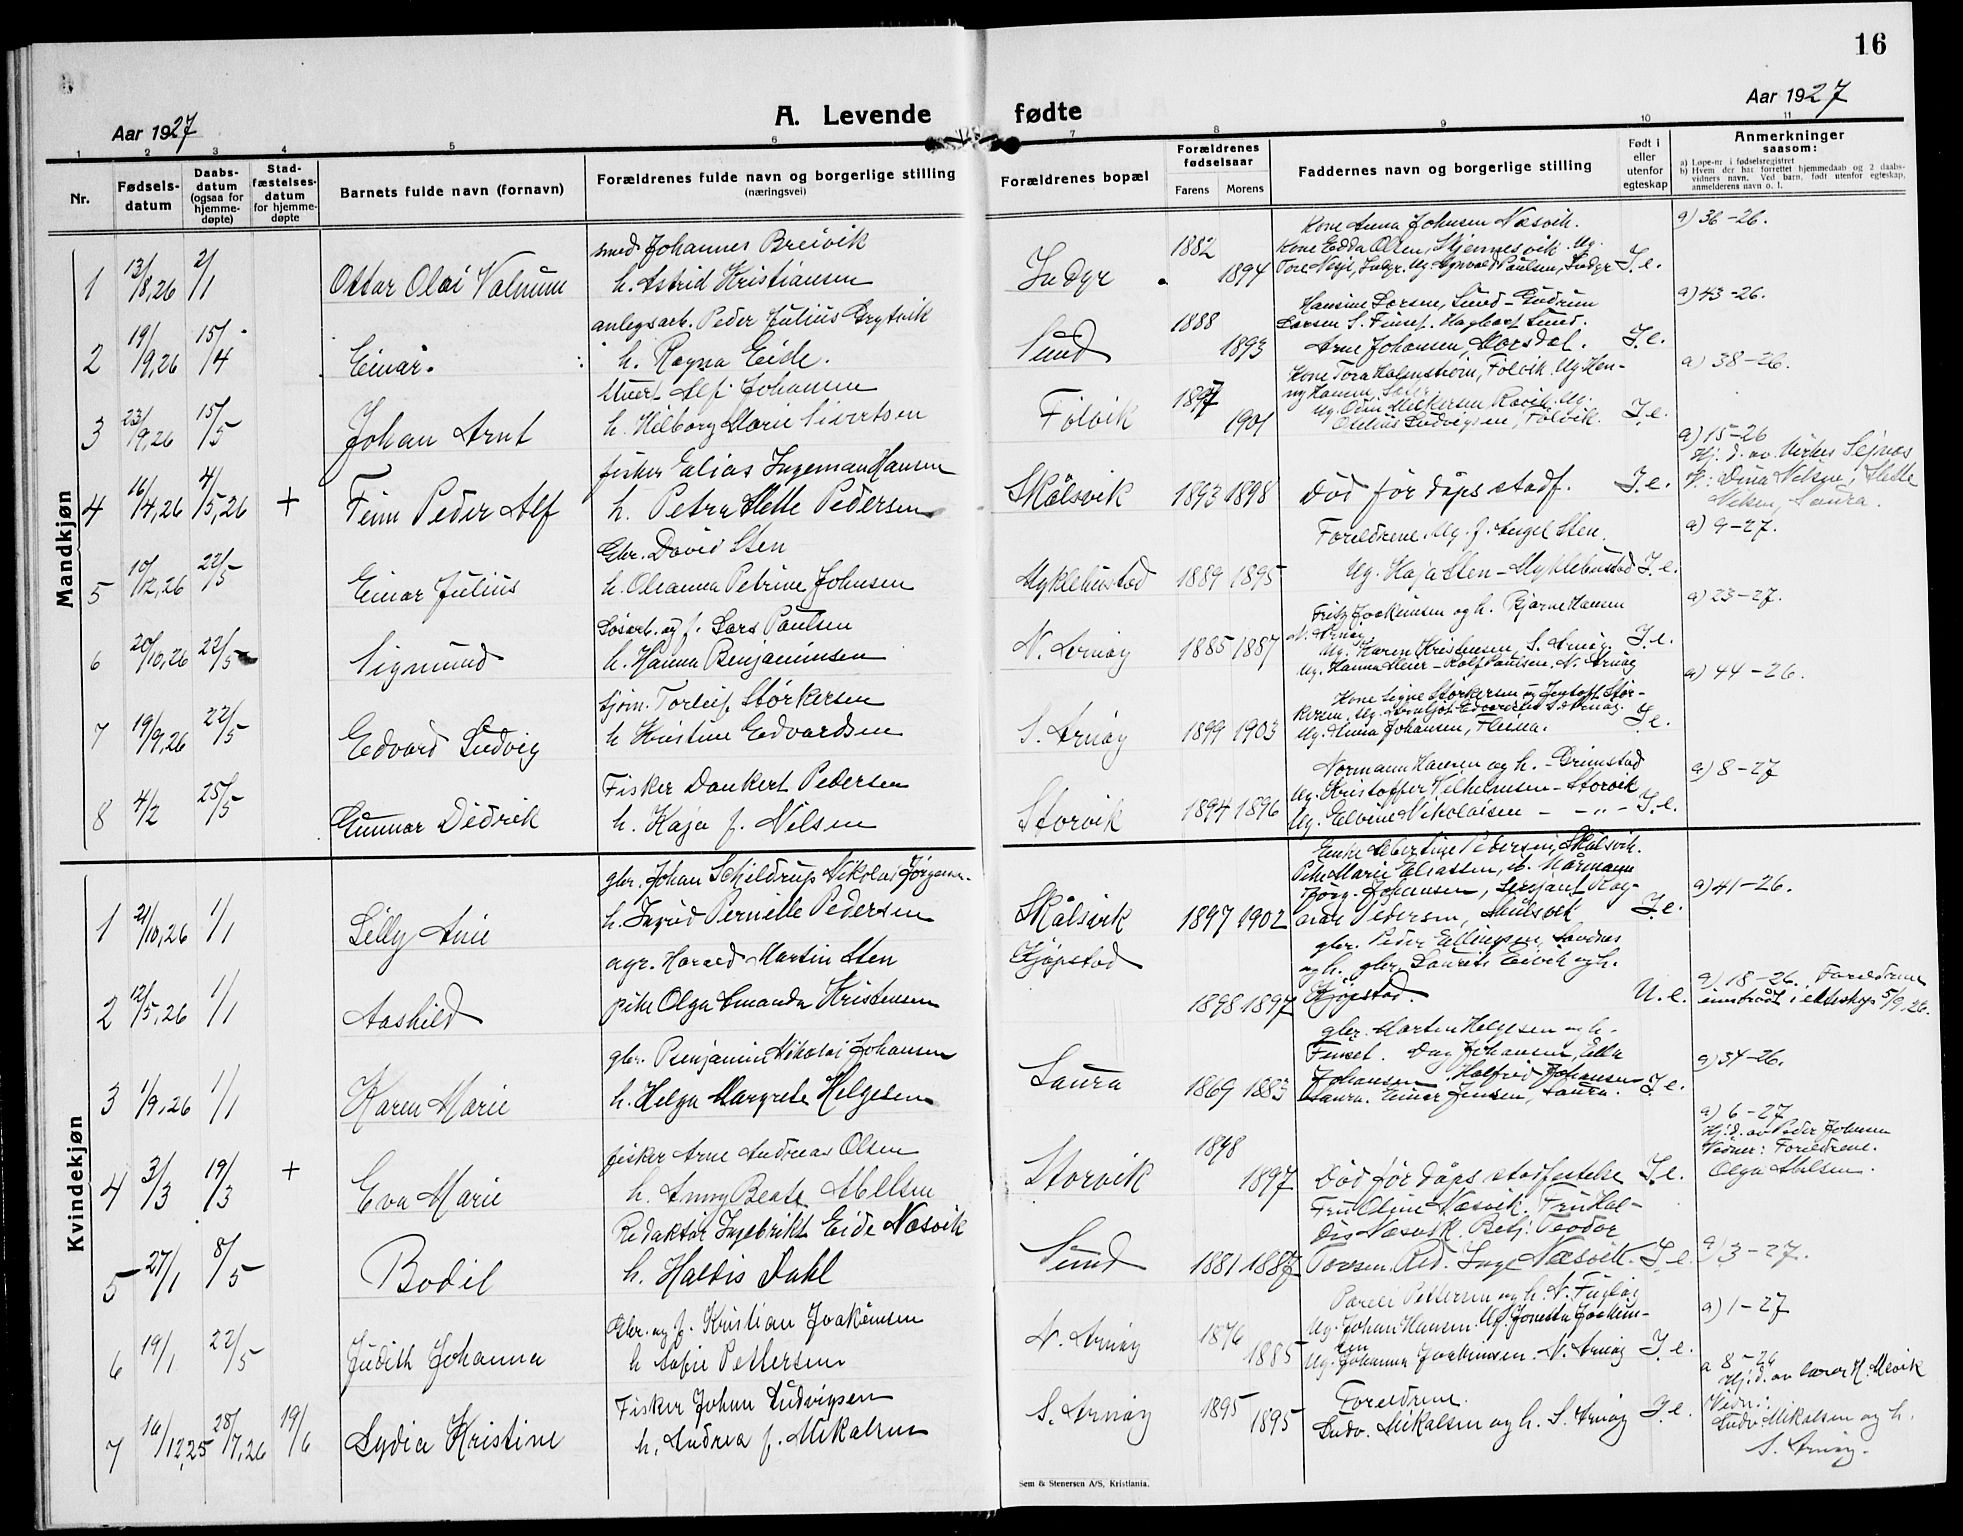 16
Aar 1927
A. Levende fødte
Aar 1927
1 2 3 4 5 6 7 8 9 10 11
Nr.
Fødsels-datum
Daabs-datum (ogsaa for hjemme-døpte)
Stad-fæstelses-datum for hjemme-døpte
Barnets fulde navn (fornavn)
Forældrenes fulde navn og borgerlige stilling (næringsvei)
Forældrenes bopæl
Forældrenes fødselsaar
Farens Morens
Faddernes navn og borgerlige stilling
Født i eller utenfor egteskap
Anmerkninger saasom:
a) Løpe-nr i fødselsregistret
b) Hvem der har forrettet hjemmedaab og 2 daabs-vidners navn. Ved barn, født utenfor egteskap, anmelderens navn o. l.
Mandkjøn
smed Johannes Breivik
1 13/8,26 2/1 Ottar Olai Valnum h. Astrid Kristiansen Indyr 1882 1894 I.e. a) 36-26.
Kone Anna Johnsen Næsvik.
anlegsarb. Peder Julius Brytvik
2 19/9,26 15/4 Einar. h. Ragna Eide. Sund 1888 1893 I.e. a) 43-26.
Arne Johansen,
Stuert Alf Johansen
3 23/9,26 15/5 Johan Arnt h. Hilborg Marie Sivertsen Følvik 1897 1901 I.e. a) 38-26.
Kone Tora Holmstrøm, Følvik.
Otelius Ludvigsen, Følvik.
fisker Elias Ingeman Hansen
4 16/4,26 4/5,26 + Finn Peder Alf h. Petra Mette Pedersen Skålsvik 1893 1898 Død før dåpsstadf. I.e. a) 15-26
Gbr. David Sten
5 10/12,26 22/5 Einar Julius h. Oleanna Petrine Johnsen Myklebustad 1889 1895 I.e. a) 9-27.
Foreldrene. Ug. f. Angel Sten.
Ug. Kaja Sten - Myklebustad
Løsarb. og f. Lars Paulsen
6 20/10,26 22/5 Sigmund h. Hanna Benjaminsen N. Arnøy 1885 1887 I.e. a) 23-27.
Fritz Joakimsen og h. Bjarne Hansen
N. Arnøy
Ug. Karen Kristensen, S. Arnøy.
Ug. Hanna Meier - Rolf Paulsen, N. Arnøy
Sjøm. Torleif Størkersen
7 19/9,26 22/5 Edvard Ludvig h Kristine Edvardsen S. Arnøy 1899 1903 I.e. a) 44-26.
Kone Signe Størkersen og Jentoft Størkersen,
Ug. Anna Johansen, Fleina.
Fisker Dankert Pedersen
8 4/2 25/5 Gunnar Didrik h. Kaja f. Nilsen Storvik 1894 1896 I.e. a) 8-27
Normann Hansen og h. - Grimstad
Ug. Kristoffer Vilhelmsen - Storvik
Ug. Elvine Nikolaisen - - " -
Kvindekjøn
gbr. Johan Schjeldrup Nikolai Jørgensen.
1 21/10,26 1/1 Lilly Anie h. Ingrid Pernille Pedersen Skålsvik 1897 1902 I.e. a) 41-26.
Enke Albertine Pedersen, Skålsvik.
Pike Marie Eliassen,
Johansen, sersjant Ragnar Pedersen, Skålsvik
agr. Harald Martin Sten
2 12/5,26 1/1 Aashild pike Olga Amanda Kristensen Kjøpstad 1898 1897 U.e. a) 18-26. Foreldrene
inntrådt i ekteskap 5/9.26.
gbr. Peder Ellingsen, Sandnes
og h. gbr. Laurits Eivik og h.
Kjøpstad.
gbr. Benjamin Nikolai Johansen
3 1/9,26 1/1 Karen Marie h. Helga Margrete Helgesen Saura 1869 1883 I.e. a) 34-26.
gbr. Martin Helgesen og h.
Finset. Dag Johansen, Ella
Johansen, Halfrid Johansen
Saura. Einar Jensen, Saura.
fisker Arne Andreas Olsen
4 3/3 19/3 + Eva Marie h. Anny Beate Abelsen Storvik 1898 1897 Død før dåpsstadfestelse I.e. a) 6-27
Hj.d. av Peder Johnsen
Vidner: Foreldrene.
Olga Abelsen.
Redaktør Ingebrikt Eide Næsvik
5 27/1 8/5 Bodil h. Haldis Dahl Sund 1881 1887 I.e. a) 3-27.
Fru Oline Næsvik. Fru Haldis Næsvik. Betj. Teodor
Torsen. Red. Inge Næsvik.
Gbr. og f. Kristian Joakimsen
6 19/1 22/5 Judith Johanna h Sofie Pettersen N. Arnøy 1876 1885 I.e. a) 1-27
Pareli Pettersen og h. N. Fugløy
Ug. Johan Hansen. Ug. Jonetta Joakimsen
Ug. Johanna Joakimsen. N. Arnøy
Fisker Johan Ludvigsen
7 16/12,25 28/7,26 19/6 Lydia Kristine h. Andrea f. Mikalsen S. Arnøy 1895 1895 I.e. a 8-26
Foreldrene.
Ludv. Mikalsen og h. S. Arnøy
Hj.d. av lærer H. Mevik
Vidn:
Ludv. Mikalsen og h.
S. Arnøy.
Sem & Stenersen A/S, Kristiania.